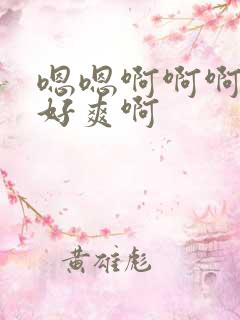 嗯嗯啊啊啊
好爽啊
黄雄彪